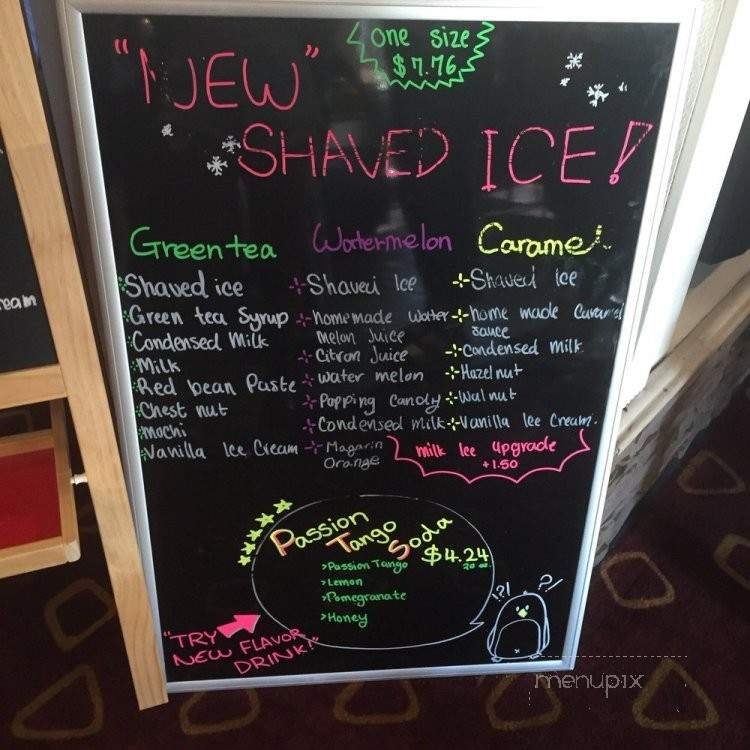 one size
$7.76
"NEW"
SHAVED ICE!
Green tea
Shaved ice
Green tea Syrup
Condensed Milk
Milk
Red bean Paste
Chest nut
mochi
Vanilla Ice Cream
Watermelon
Shaved Ice
homemade water
melon Juice
Citron Juice
water melon
Popping Candy
Condensed milk
Magarin
Orange
Caramel
Shaved Ice
home made Caramel
sauce
Condensed milk
Hazel nut
Wal nut
Vanilla Ice Cream.
milk Ice upgrade
+1.50
Passion
Tango
Soda
$4.24
20 oz.
>Passion Tango
>Lemon
>Pomegranate
>Honey
"TRY
NEW FLAVOR
DRINK!"
!?!
?!
eam
menupix